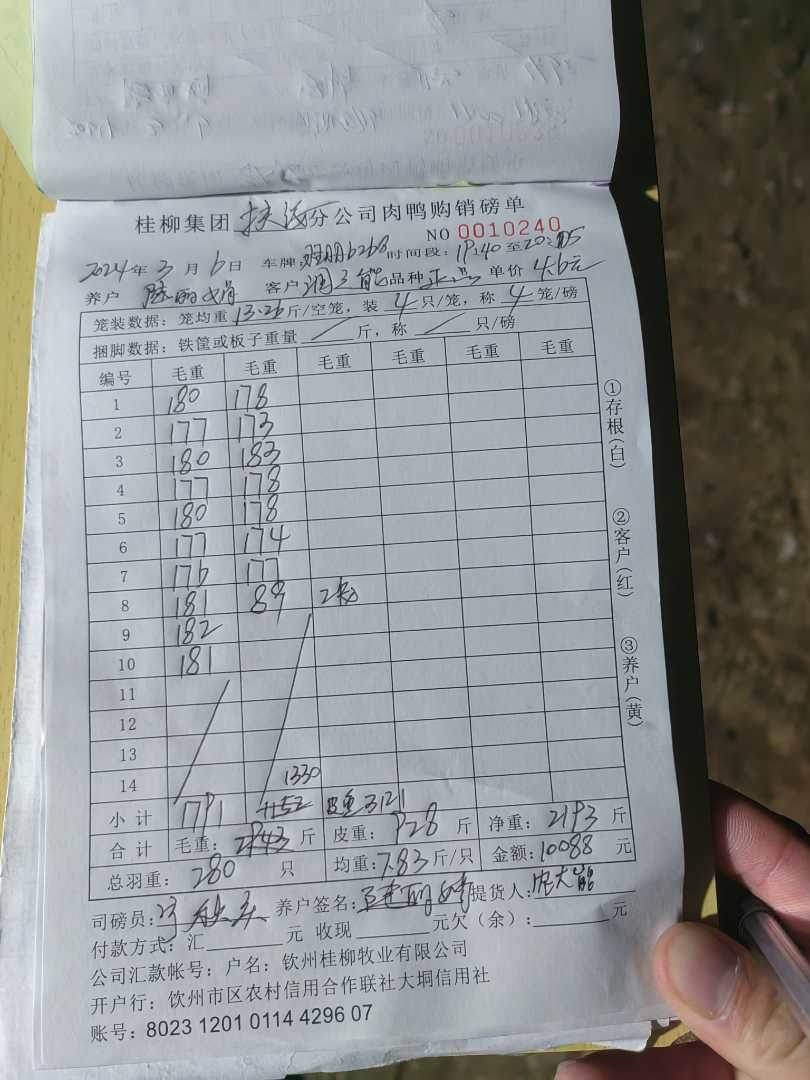 桂柳集团 扶绥分公司肉鸭购销磅单
NO 0010240
2024年 3月 6日 车牌: 6268 时间段: 19:40 至 20:05
养户 陆丽娟 客户 品种 单价 4.6元
笼装数据: 笼均重 13.26 斤/空笼, 装 4 只/笼, 称 4 笼/磅
捆脚数据: 铁筐或板子重量 / 斤, 称 / 只/磅
编号 毛重 毛重 毛重 毛重 毛重 毛重
1 180 178
2 177 173
3 180 183
4 177 178
5 180 178
6 177 174
7 176 177
8 181 89 2
9 182
10 181
11
12
13
14 1330
小计 1791 3121
合计 毛重: 2943 斤 皮重: 928 斤 净重: 2193 斤
总羽重: 280 只 均重: 7.83 斤/只 金额: 10088 元
司磅员: 养户签名: 提货人:
付款方式: 汇 元 收现 元欠(余): 元
公司汇款帐号: 户名: 钦州桂柳牧业有限公司
开户行: 钦州市区农村信用合作联社大垌信用社
账号: 8023 1201 0114 4296 07
①存根(白)
②客户(红)
③养户(黄)